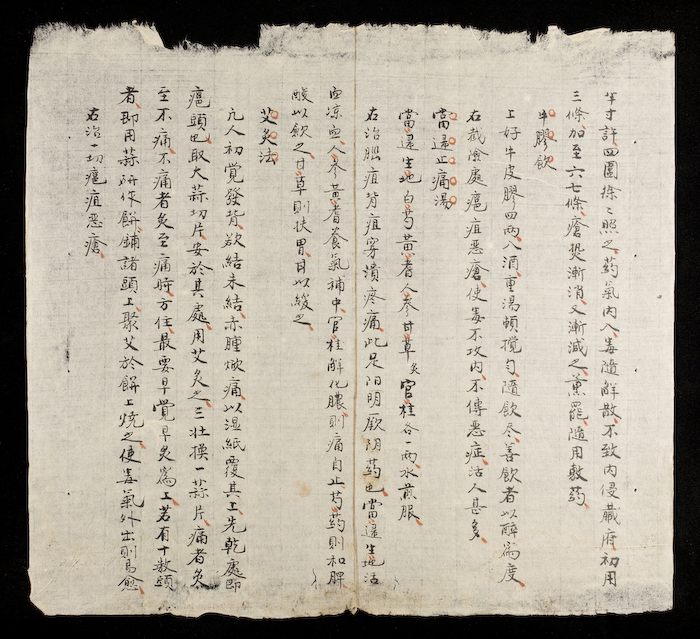 半寸許四圍徐々照之药氣內入毒隨解散不致內侵臟府初用
三條加至六七條瘡勢漸消又漸減之薰罷隨用敷药
牛膠飲
上好牛皮膠四兩入酒重湯頓攪勻隨飲尽善飲者以醉為度
右截險處癰疽惡瘡使毒不攻內不傳惡症活人甚多
當遠止痛湯
當遠生地白芍黃耆人參甘草炙官桂各一兩水煎服
右治腦疽背疽穿潰疼痛此足阳明厥阴药也當遠生地活
血凉血人參黃耆养氣補中官桂解化膿則痛自止芍药則和脾
酸以飲之甘草則扶胃甘以緩之
艾灸法
凢人初覺發背欲結未結赤腫焮痛以湿紙覆其上先乾處即
癰頭也取大蒜切片安於其處用艾灸之三壯換一蒜片痛者灸
至不痛不痛者灸至痛時方住最要早覺早灸為上若有十数頭
者即用蒜研作餅鋪諸頭上聚艾於餅上燒之使毒氣外出則易愈
右治一切癰疽惡瘡